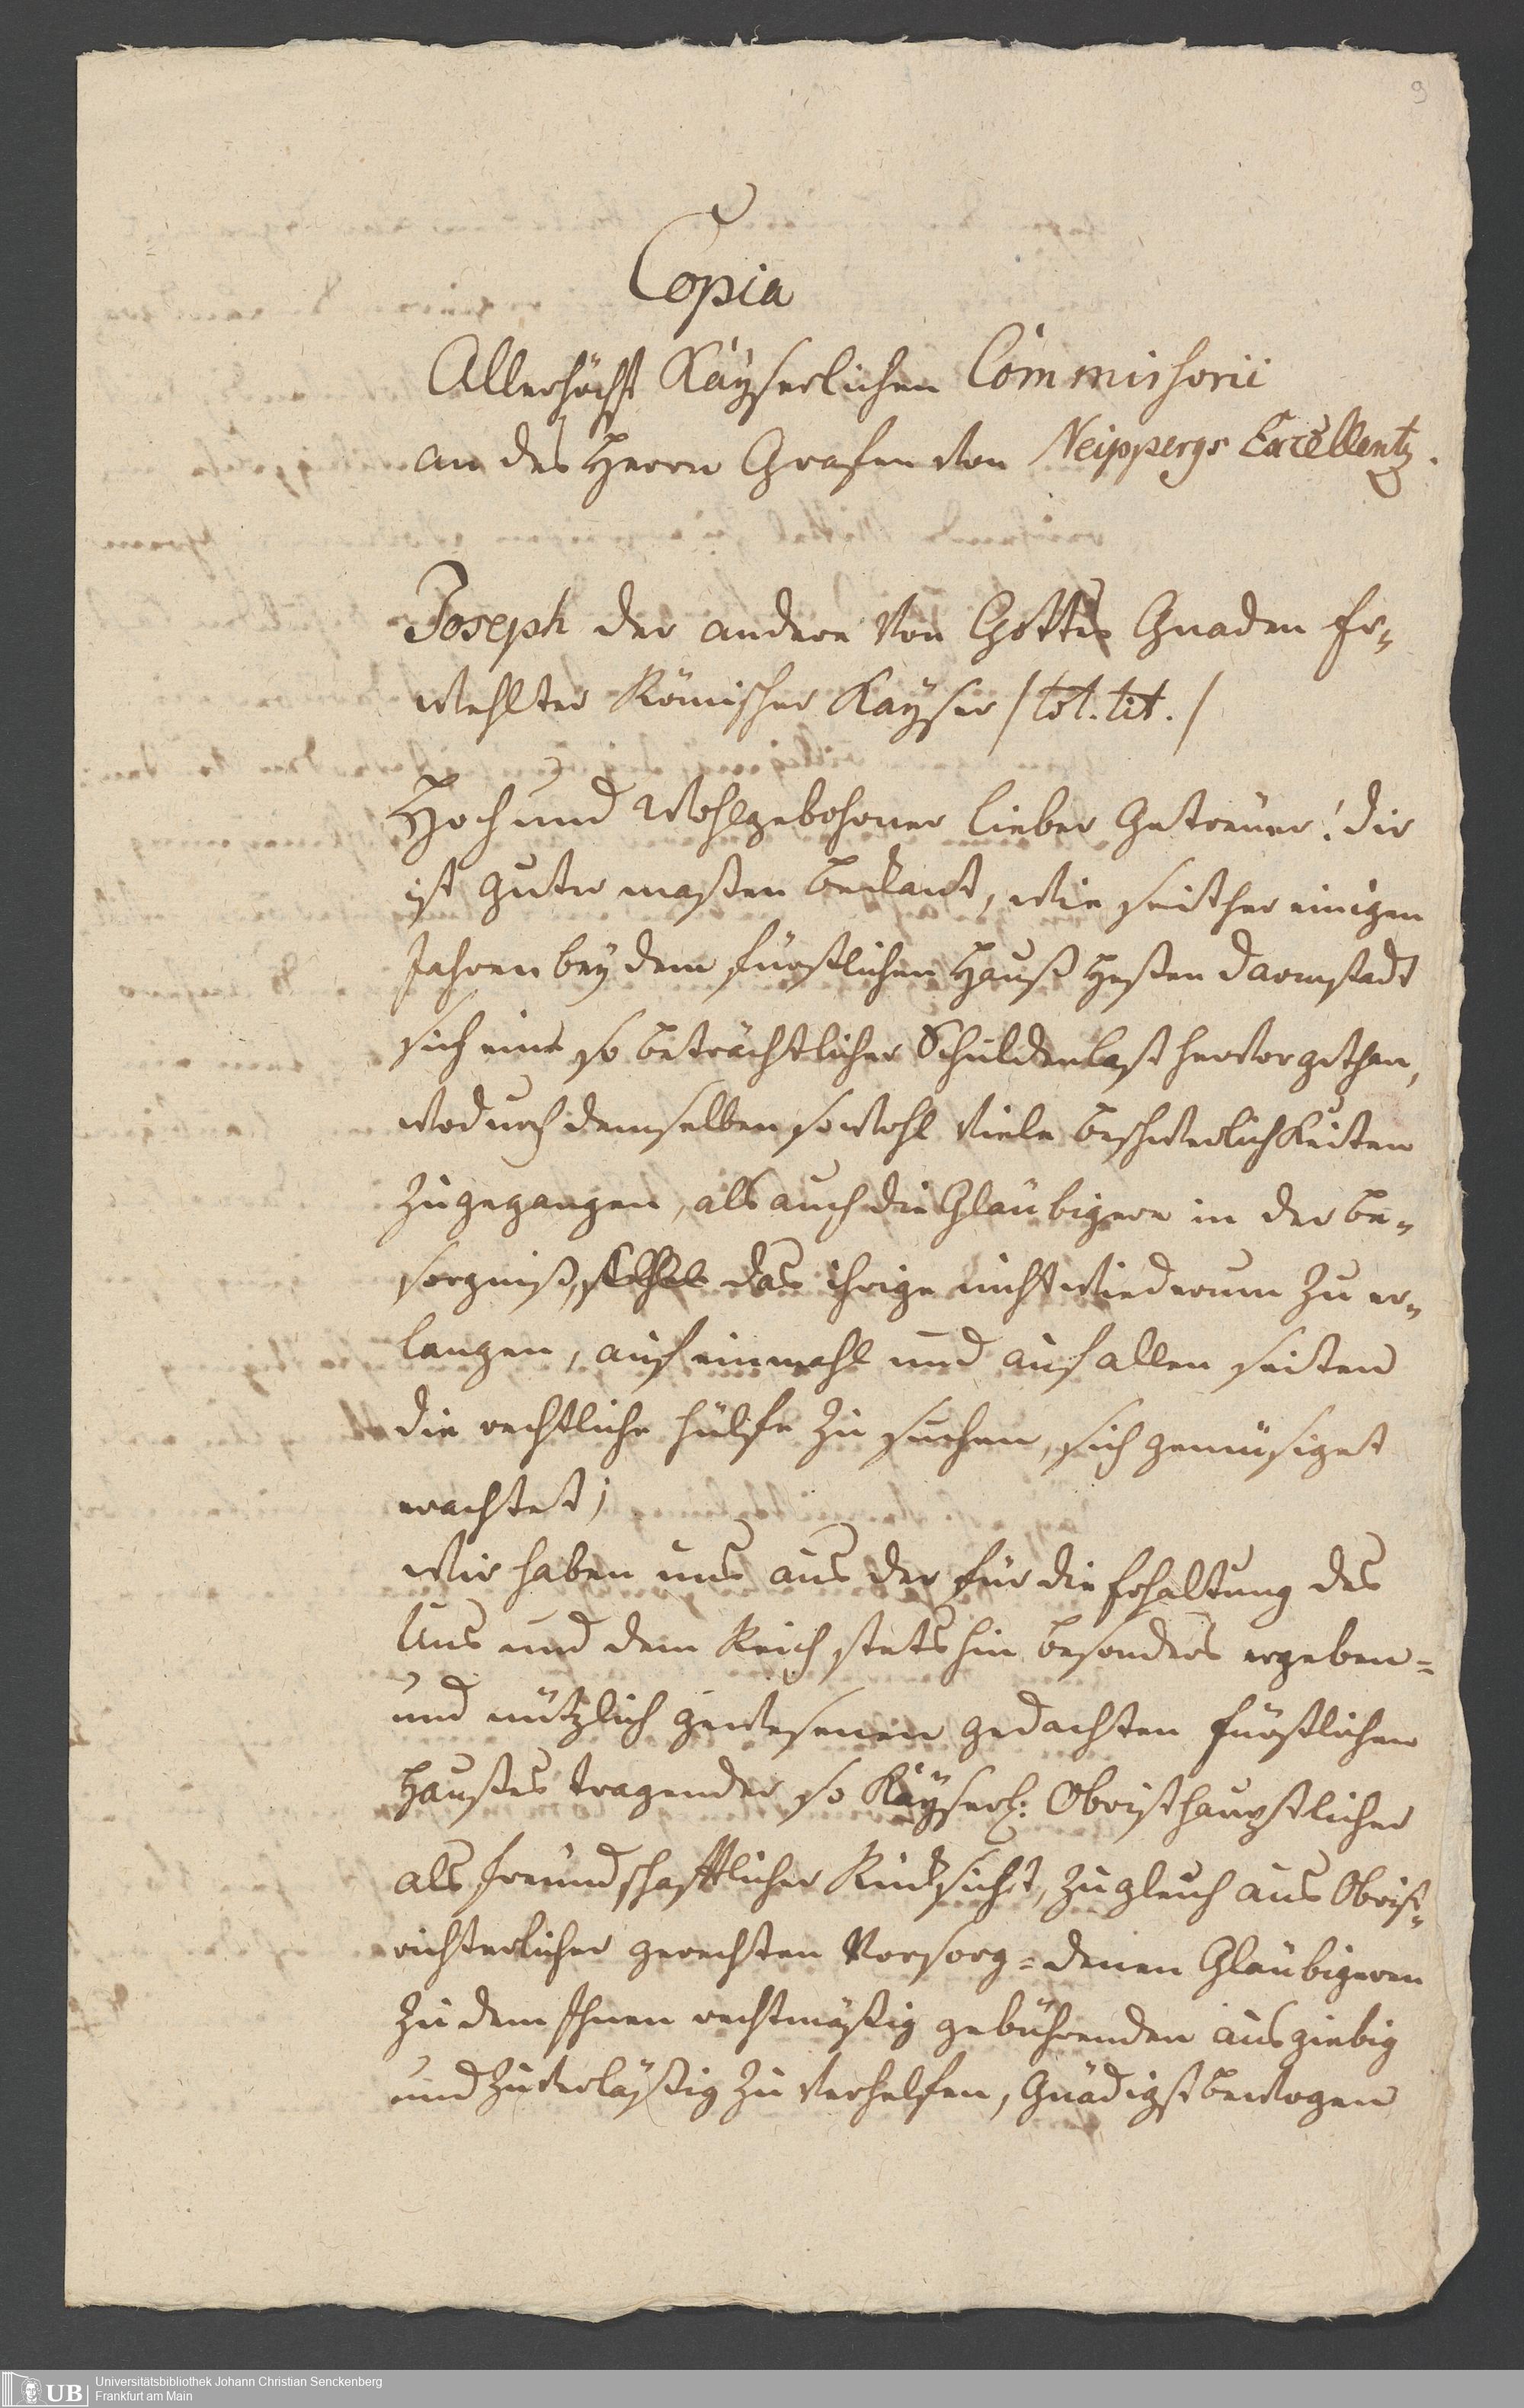 9
Copia
Allerhöchst Kayserlichen Commissorii
an des Herrn Grafen von Neippergs Excellentz.
Joseph der andere von Gottes Gnaden Er-
wehlter Römischer Kayser /tot. tit./
Hoch und Wohlgebohrner lieber Getreuer! dir
ist guter maßen bekant, wie seither einigen
Jahren bey dem fürstlichen Hauß Heßen Darmstadt
sich eine so beträchtlicher Schuldenlast hervorgethan,
wodurch demselben sowohl viele beschwerlichkeiten
zugegangen, als auch die Gläubigere in der be-
sorgniß, das ihrige nicht wiederum zu er-
langen, auf einmahl und auf allen seiten
die rechtliche hülfe zu suchen, sich gemüsiget
erachtet;
Wir haben uns aus der für die Erhaltung des
Uns und dem Reich stetshin besonders ergeben=
und nützlich gewesenen gedachten fürstlichen
Haußes tragender so Kayserl: Obristhauptlicher
als freundschafftlicher Rücksicht, zugleich aus Obrist-
richterlicher gerechten Vorsorg= denen Gläubigeren
zu dem Ihnen rechtmäßig gebührenden ausgiebig
und zuverläßig zu verhelfen, Gnädigst bewogen
UB
Universitätsbibliothek Johann Christian Senckenberg
Frankfurt am Main